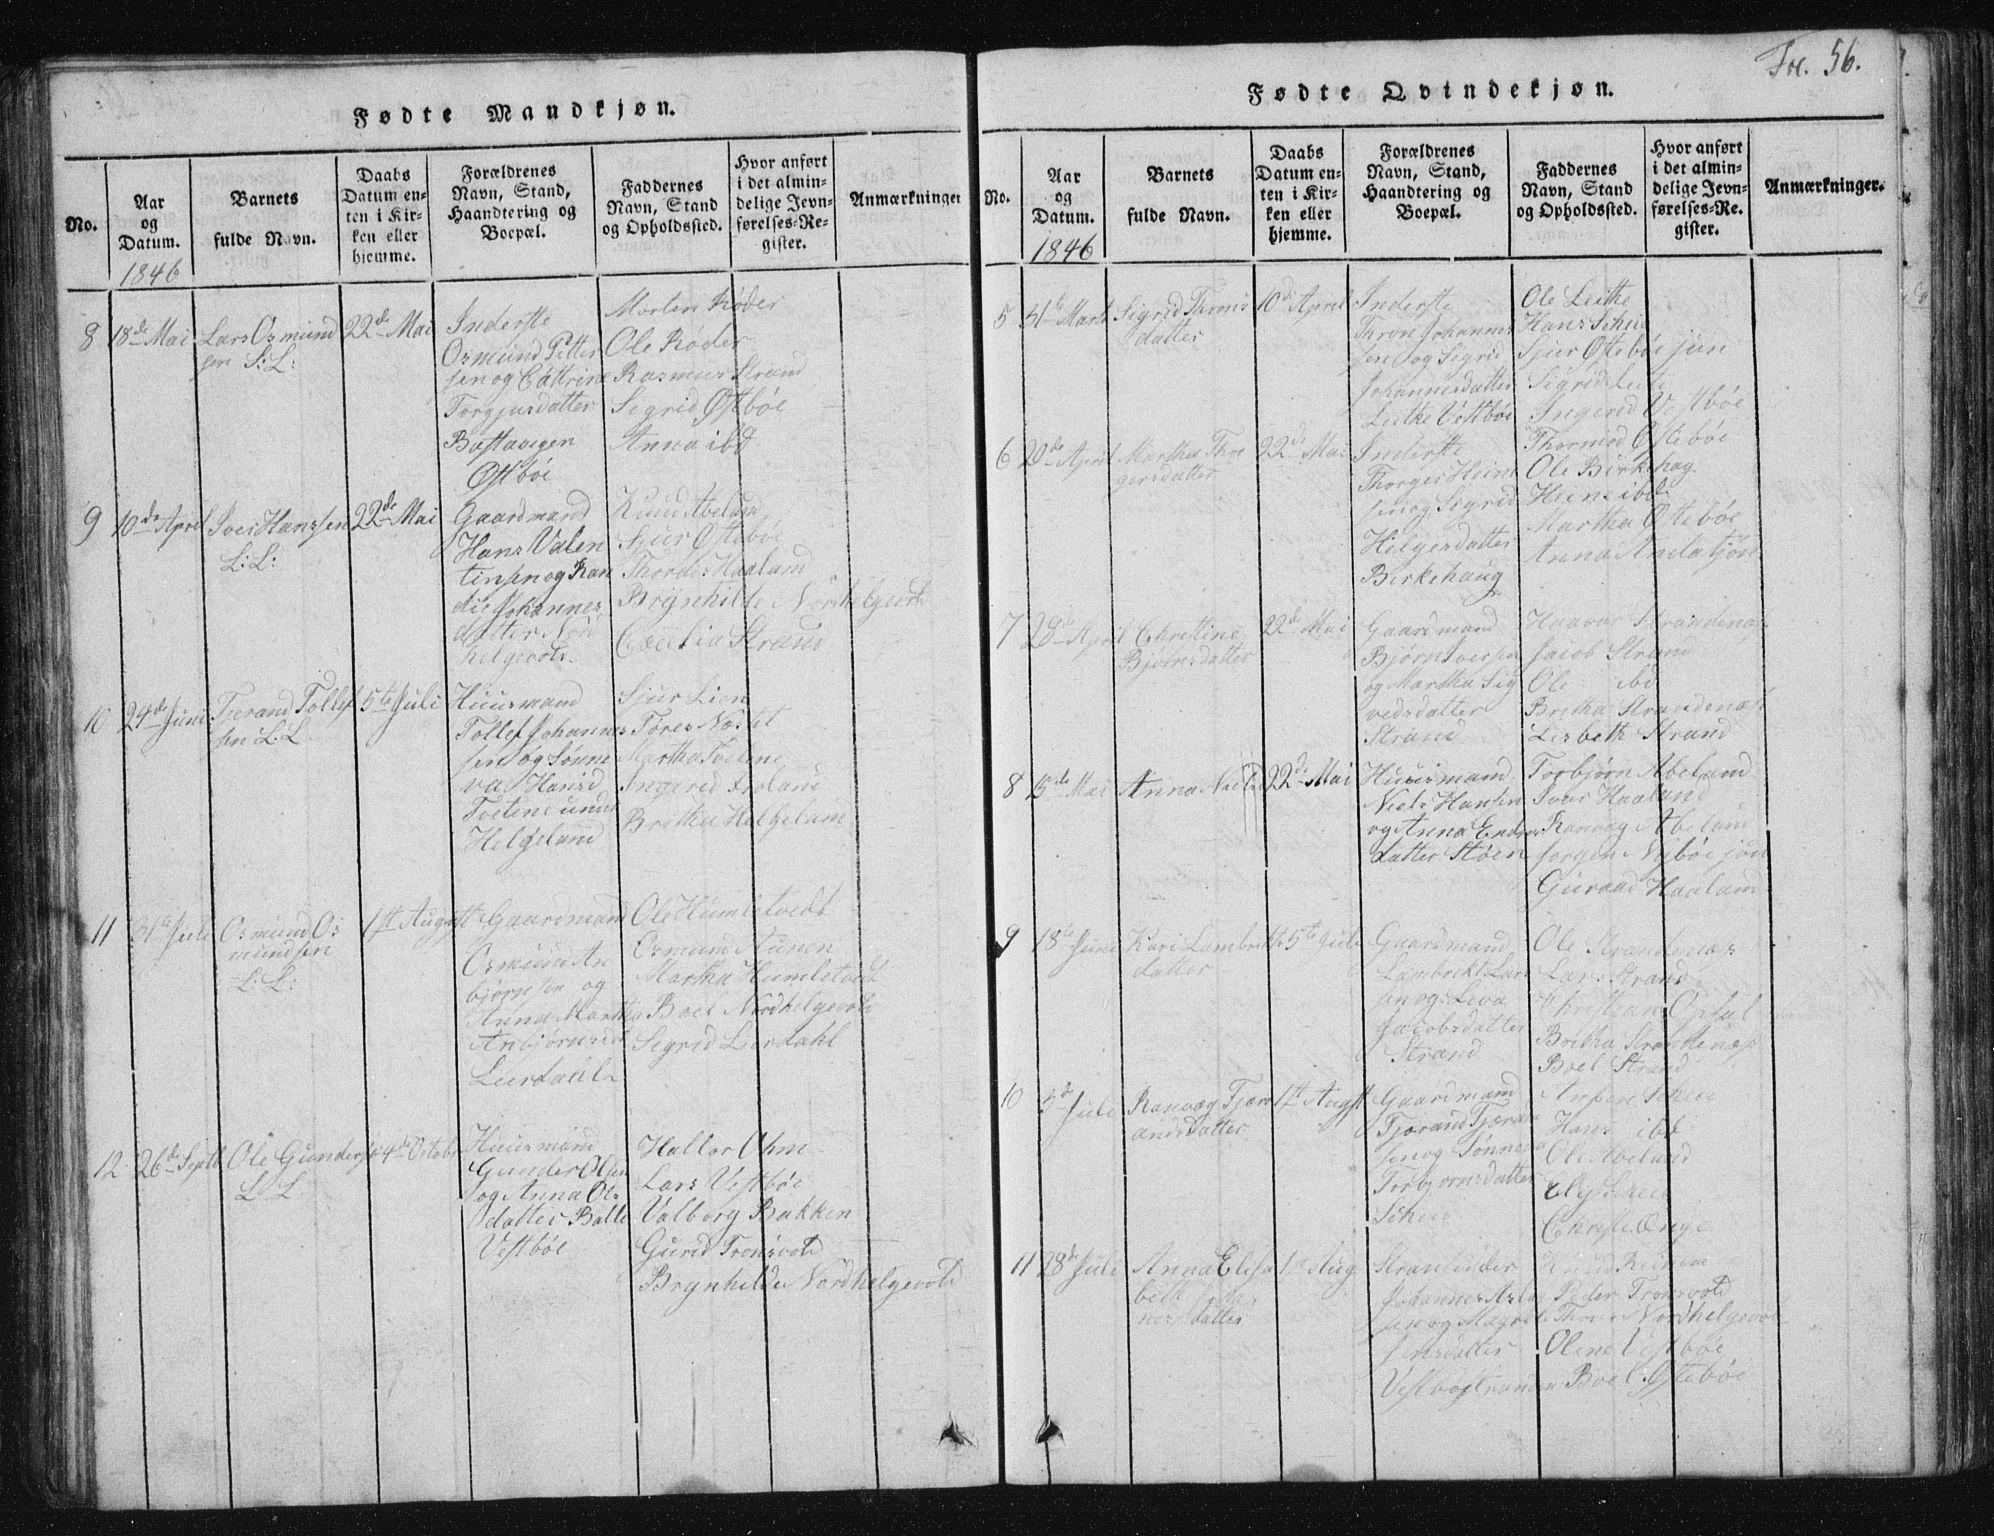 Fødte Mandkjøn.
No.
Aar og Datum.
Barnets fulde Navn.
Daabs Datum enten i Kirken eller hjemme.
Forældrenes Navn, Stand, Haandtering og Boepæl.
Faddernes Navn, Stand og Opholdssted.
Hvor anført i det almindelige Jevnførelses-Register.
Anmærkninger
1846
8
18de Mai
Lars Osmund
sen S: L:
22de Mai
Inderste
Osmund Petter
sen og Cattrine
Torgjusdatter
Østbøe
Morten Røder
Ole Røder
Rasmus Strand
Sigrid Østbøe
Anna ibd
9
10de April
Iver Hanssen
L: L:
22de Mai
Gaardmand
Hans Valen
tinsen og Ran
die Johannes
datter Nord
helgevold
Knud Abeland
Sjur Østebøe
Thordes Haaland
Brynhilde Nordhelgevold
Cecelia Strand
10
24de Juni
Tjerand Tollef
sen L: L
5te Juli
Huusmand
Tollef Johannes
sen og Sønne
va Hansd
Tvetene under
Helgeland
Sjur Lien
Tores Næstet
Martha Tvetene
Ingerid Froland
Britha Helgeland
11
31te Juli
Osmund Os
mundsen
L: L:
1st August
Gaardmand
Osmund An
bjørnsen og
Anna Martha
Anbjørnsd
Leerdahl
Ole Humletvedt
Osmund Aunen
Martha Humletvedt
Boel Nordhelgevold
Sigrid Leerdahl
12
26de Septb
Ole Gundersen
L: L:
4de Octobr
Huusmand
Gunder Olsen
og Anna Ols
datter Balle
Vestbøe
Hallor Ohm
Lars Vestbøe
Valborg Bakken
Gurid Tronsvold
Brynhilde Nordhelgevold
Fol. 56.
Fødte Qvindekjøn.
No.
Aar og Datum.
Barnets fulde Navn.
Daabs Datum enten i Kirken eller hjemme.
Forældrenes Navn, Stand, Haandtering og Boepæl.
Faddernes Navn, Stand og Opholdssted.
Hvor anført i det almindelige Jevnførelses-Register.
Anmærkninger.
1846
5
31te Marts
Sigrid Throns
datter
10de April
Inderste
Thron Johannes
sen og Sigrid
Johannesdatter
Leithe Vestbøe
Ole Leithe
Hans Scheie
Sjur Østebøe jun
Sigrid Leite
Ingerid Vestbøe
6
20de April
Martha Thor
gersdatter
22de Mai
Inderste
Thorger Heine
sen og Sigrid
Helgesdatter
Birkehaug
Thormod Østebøe
Ole Birkehag
Heine ibd
Martha Østebøe
Anna Andatjøn
7
28de April
Christine
Bjørnsdatter
22de Mai
Gaardmand
Bjørn Iversen
og Martha Sig
vedsdatter
Strand
Haavar Strandenæs
Jacob Strand
Ole ibd
Britha Strandenæs
Lisbeth Strand
8
15de Mai
Anna Nielsd
22de Mai
Huusmand
Niels Hansen
og Anna Enders
datter Støen
Torbjørn Abeland
Ivar Haaland
Ranvæg Abeland
Jorgen Nybøe jun
Guraad Haaland
9
18de Juni
Kari Lambrikts
datter
5te Juli
Gaardmand
Lambrekt Lars
sen og Leva
Jacobsdatter
Strand
Ole Strandenæs
Lars Strand
Christian Opsal
Britha Strandenæs
Boel Strand
10
3de Juli
Ranvæg Tjær
andsdatter
1st Augst
Gaardmand
Tjærand Tjæran
sen og Sønneva
Torbjørnsdatter
Scheie
Ansen Scheie
Hans ibd
Ole Abeland
Ely Scheie
Christe Ørge
11
28de Juli
Anna Elisa
beth Johan
nesdatter
1st Aug
Strandsidder
Johannes Aslag
sen og Magrete
Jensdatter
Vestbøstranden
Knud Reinem
Peder Tronsvold
Thore Nordhelgevold
Oline Vestbøe
Boel Østebøe